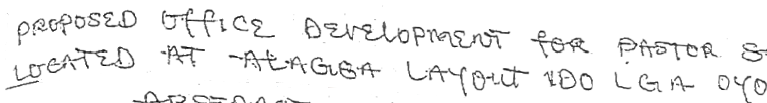 PROPOSED OFFICE DEVELOPMENT FOR PASTOR S
LOCATED AT ALAGBA LAYOUT IDO LGA OYO